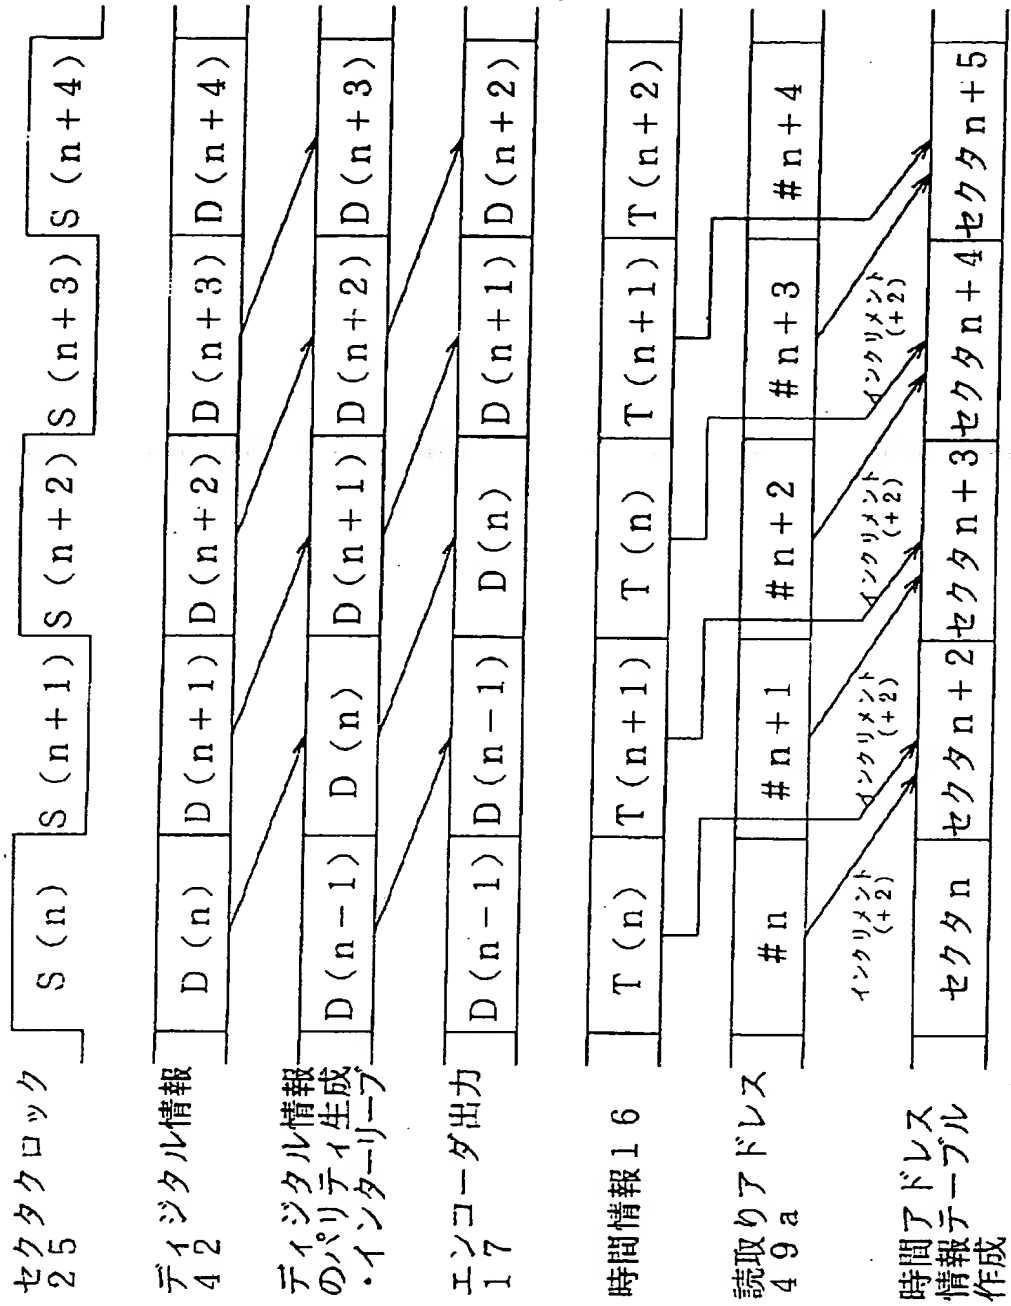 セクタクロック
25
S(n)
S(n+1)
S(n+2)
S(n+3)
S(n+4)
ディジタル情報
42
D(n)
D(n+1)
D(n+2)
D(n+3)
D(n+4)
ディジタル情報
のパリティ生成
・インターリーブ
D(n-1)
D(n)
D(n+1)
D(n+2)
D(n+3)
エンコーダ出力
17
D(n-1)
D(n-1)
D(n)
D(n+1)
D(n+2)
時間情報16
T(n)
T(n+1)
T(n)
T(n+1)
T(n+2)
読取りアドレス
49a
#n
#n+1
#n+2
#n+3
#n+4
インクリメント
(+2)
インクリメント
(+2)
インクリメント
(+2)
インクリメント
(+2)
時間アドレス
情報テーブル
作成
セクタn
セクタn+2
セクタn+3
セクタn+4
セクタn+5